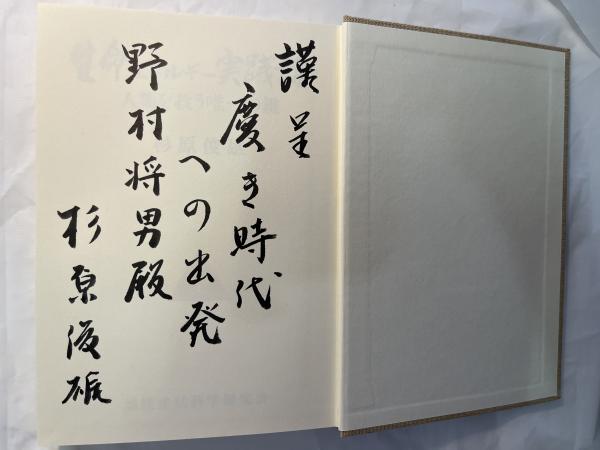 謹呈
慶き時代
への出発
野村将男殿
杉原俊雄